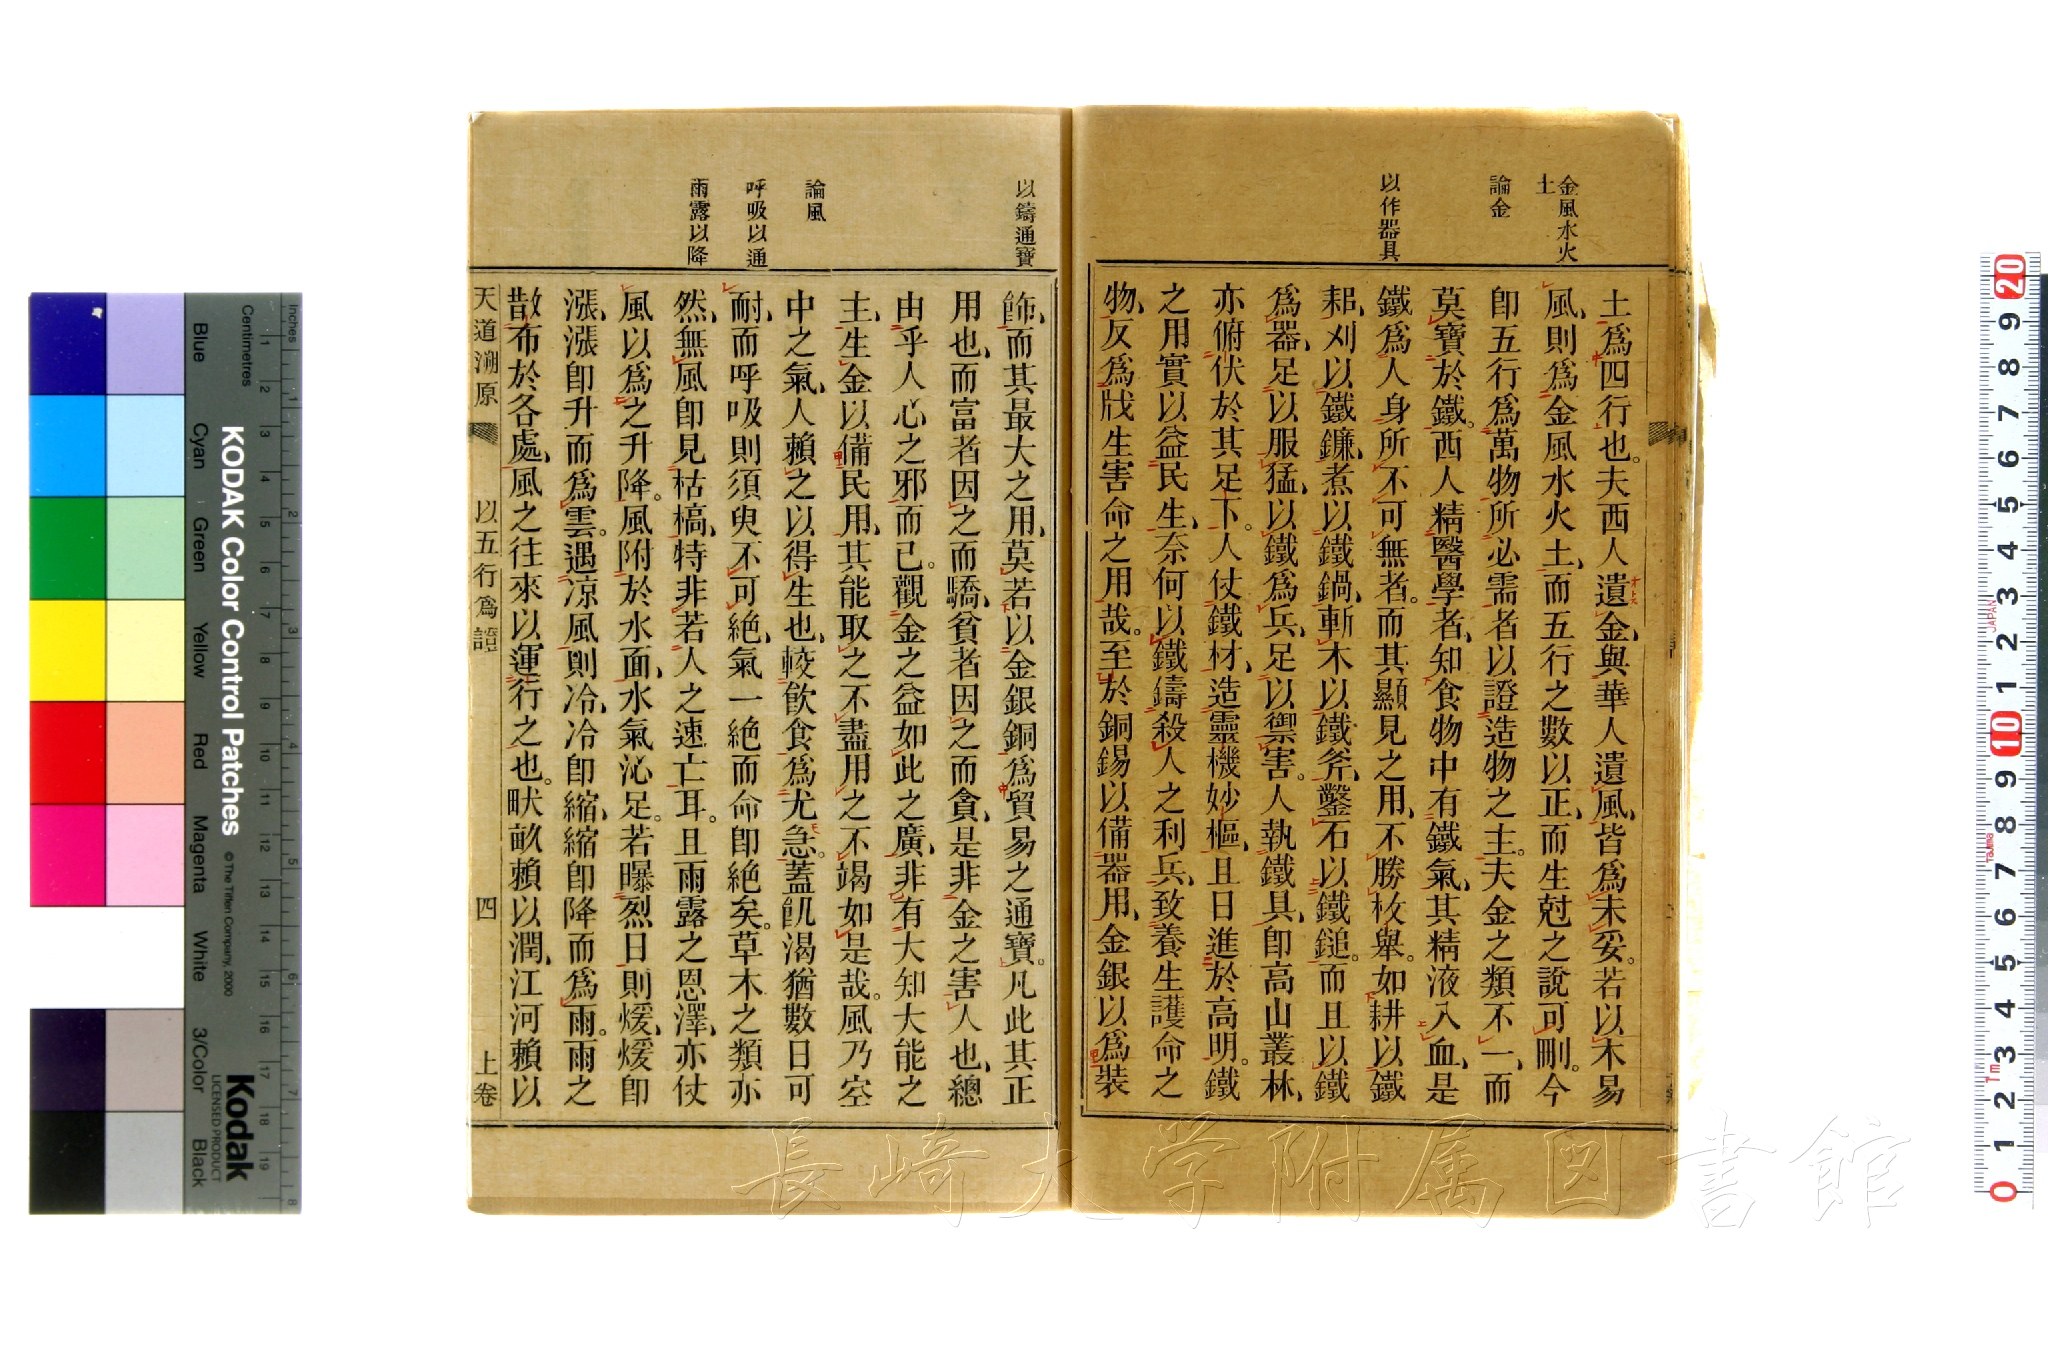 金風水火
土
論金
以作器具
土爲四行也。夫西人遺金、與華人遺風、皆爲未妥。若以木易
風、則爲金風水火土、而五行之數以正、而生尅之說可刪。今
卽五行爲萬物所必需者、以證造物之主。夫金之類不一、而
莫寶於鐵。西人精醫學者、知食物中有鐵氣、其精液入血、是
鐵爲人身所不可無者。而其顯見之用、不勝枚舉。如耕以鐵
耜、刈以鐵鐮、煮以鐵鍋、斬木以鐵斧、鑿石以鐵鎚。而且以鐵
爲器、足以服猛、以鐵爲兵、足以禦害。人執鐵具、卽高山叢林、
亦俯伏於其足下。人仗鐵材、造靈機妙樞、且日進於高明。鐵
之用實以益民生、奈何以鐵鑄殺人之利兵、致養生護命之
物、反爲戕生害命之用哉。至於銅錫以備器用、金銀以爲裝
以鑄通寶
論風
呼吸以通
雨露以降
飾、而其最大之用、莫若以金銀銅爲貿易之通寶。凡此其正
用也、而富者因之而驕、貧者因之而貪、是非金之害人也、總
由乎人心之邪而已。觀金之益如此之廣、非有大知大能之
主、生金以備民用、其能取之不盡用之不竭如是哉。風乃空
中之氣、人賴之以得生也、較飲食爲尤急。蓋飢渴猶數日可
耐、而呼吸則須臾不可絕、氣一絕而命卽絕矣。草木之類亦
然、無風卽見枯槁、特非若人之速亡耳。且雨露之恩澤、亦仗
風以爲之升降。風附於水面、水氣沁足。若曝烈日則煖、煖卽
漲、漲卽升而爲雲。遇凉風則冷、冷卽縮、縮卽降而爲雨。雨之
散布於各處、風之往來以運行之也。畎畝賴以潤、江河賴以
天道溯原 以五行爲證 四 上卷
Inches
Centimetres
Blue Cyan Green Yellow Red Magenta White 3/Color Black
KODAK Color Control Patches
© The Tiffen Company, 2000
Kodak
LICENSED PRODUCT
長崎大学附属図書館